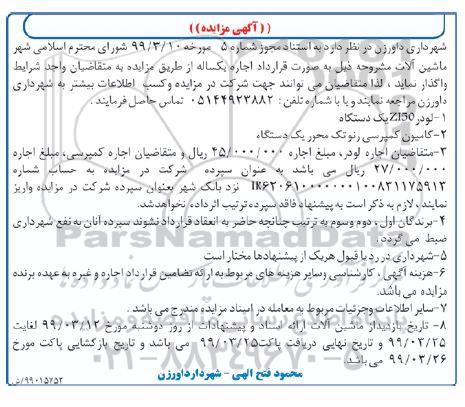 ( ( آگهی مزایده) )
شهرداری داورزن در نظر دارد به استناد مجوز شماره ۵ مورخه ۹۹/۳/۱۰ شورای محترم اسلامی شهر
ماشین آلات مشروحه ذیل به صورت قرارداد اجاره یکساله از طریق مزایده به متقاضیان واجد شرایط
واگذار نماید ، لذا متقاضیان می توانند جهت شرکت در مزایده وکسب اطلاعات بیشتر به شهرداری
داورزن مراجعه نمایند و یا با شماره تلفن: ۰۵۱۴۴۹۲۳۸۸۲ تماس حاصل فرمایند .
۱-لودرZl50یک دستگاه
۲-کامیون کمپرسی رنو تک محور یک دستگاه
۳-متقاضیان اجاره لودر، مبلغ اجاره ۴۵/۰۰۰/۰۰۰ ریال و متقاضیان اجاره کمپرسی، مبلغ اجاره
۲۷/۰۰۰/۰۰۰ ریال می باشد به عنوان سپرده شرکت در مزایده به حساب شماره
نزد بانک شهر بعنوان سپرده شرکت در مزایده واریز
نمایند ، لازم به ذکر است به پیشنهاد فاقد سپرده ترتیب اثر داده نخواهدشد.
۴-برندگان اول ، دوم وسوم به ترتیب چنانچه حاضر به انعقاد قرارداد نشوند سپرده آنان به نفع شهرداری
ضبط می گردد .
۵-شهرداری در رد یا قبول هریک از پیشنهادها مختار است
۶-هزینه آگهی ، کارشناسی وسایر هزینه های مربوط به ارائه تضامین قرارداد اجاره و غیره به عهده برنده
مزایده می باشد.
۷-سایر اطلاعات وجزئیات مربوط به معامله در اسناد مزایده مندرج می باشد .
۸- تاریخ بازدیدار ماشین آلات ارائه اسناد و پیشنهادات از روز دوشنبه مورخ ۹۹/۰۳/۱۲ لغایت
۹۹/۰۳/۲۵ و تاریخ نهایی دریافت پاکت۹۹/۰۳/۲۵ می باشد و تاریخ بازگشایی پاکت مورخ
۹۹/۰۳/۲۶ می باشد.
محمود فتح الهی - شهردارداورزن
۹۹۰۱۵۷۵۲/ش
ParsNamadData
۰۲۱-۸۸۳۴۹۶۷۰-۵